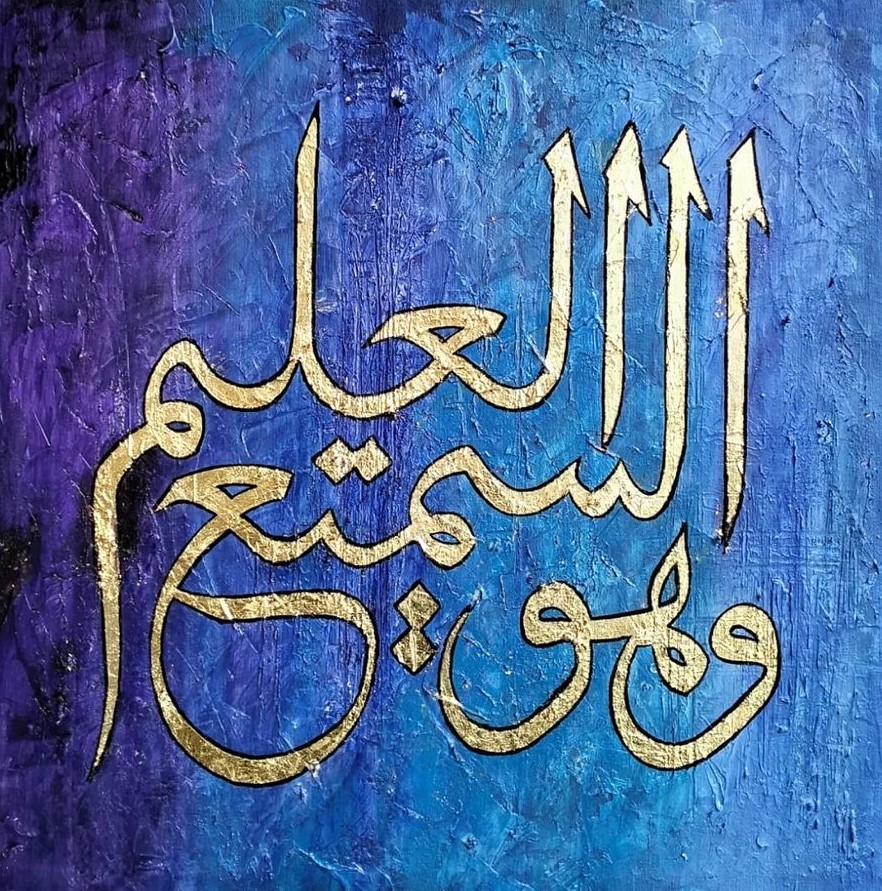 وهو
السميع
العليم